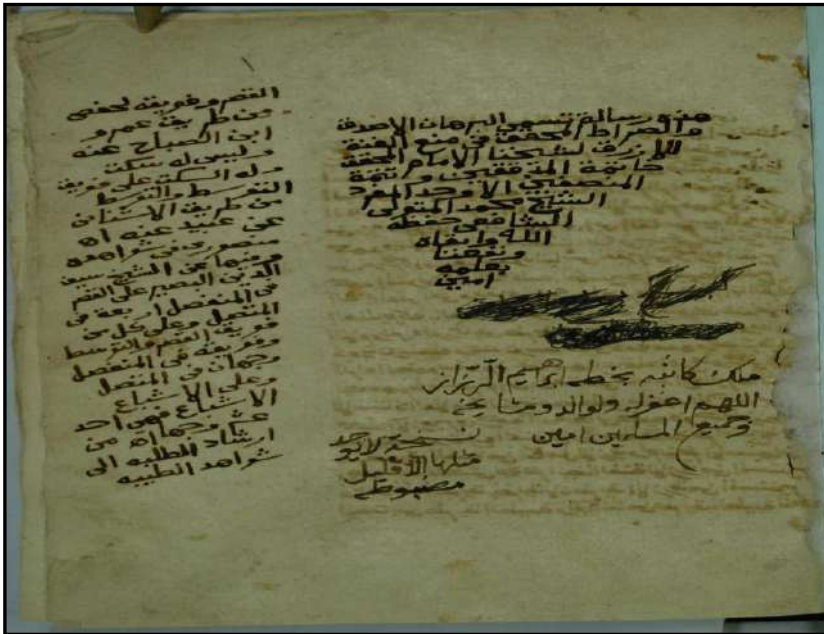 هذه رسالة تسمى البرهان الاصدق
والصراط المحقق في منع الغنة
للازرق لشيخنا الامام المحقق
خاتمة المدققين وتتمة
المنصفين الاوحد المفرد
الشيخ محمد المتولي
الشافعي حفظه
الله وابقاه
ونفعنا
بعلمه
امين
ملك كاتبه بخطه ابراهيم
اللهم اغفر له ولوالديه ومشايخه
وجميع المسلمين امين
نسخة لا يوجد
مثلها الا قليل
مضبوطة
القصر وفويقه لحفص
من طريق عمرو
ابن الصباح عنه
وليس له سكت
وله السكت على فويق
التوسط والتوسط
من طريق الاشناني
عن عبيد عنه اه
منصوري في شواهده
ومنها عن الشيخ سيف
الدين البصير على القصر
في المنفصل اربعة في
المتصل وعلى كل من
فويق القصر والتوسط
وفويقه في المنفصل
وجهان في المتصل
وعلى الاشباع
الاشباع فهي احد
عشر وجها اه من
ارشاد الطلبه الى
شواهد الطيبه